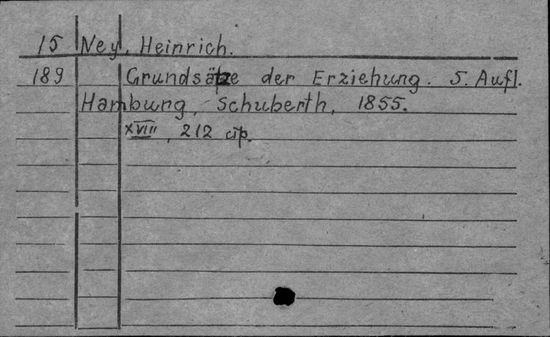 15 Ney, Heinrich.
189 Grundsätze der Erziehung. 5. Aufl.
Hamburg, Schuberth, 1855.
XVIII, 212 стр.